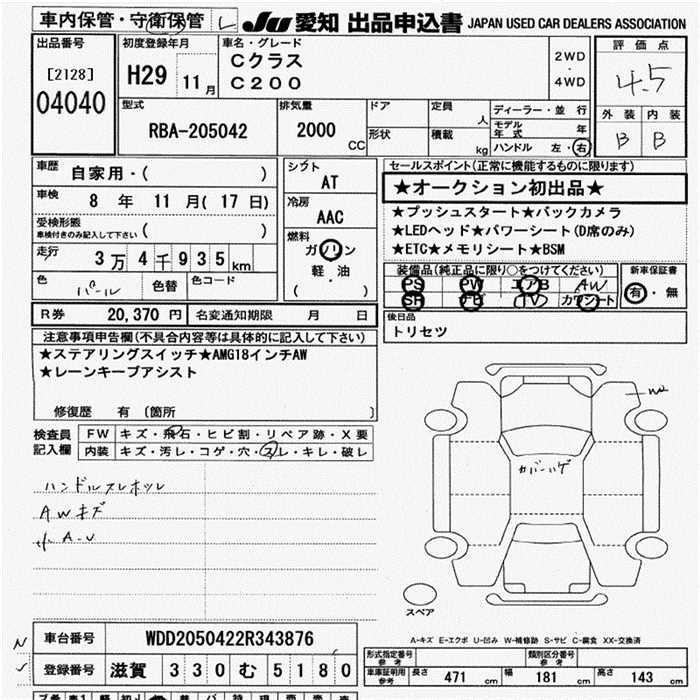 車内保管・守衛保管
JU 愛知 出品申込書 JAPAN USED CAR DEALERS ASSOCIATION
出品番号
[2128]
04040
初度登録年月
H29 11月
車名・グレード
Cクラス
C200
2WD
・
4WD
評価点
4.5
外装 内装
B B
型式
RBA-205042
排気量
2000
CC
ドア
形状
定員
人
積載
kg
ディーラー・並行
モデル年式 年
ハンドル 左・右
車歴
自家用・( )
車検
8 年 11 月( 17 日)
受検形態
車検付きのみ記入して下さい ( )
走行
3万4千935km
色
パール
色替
色コード
シフト
AT
冷房
AAC
燃料
ガソリン
軽・油
( )
R券 20,370 円
名変通知期限 月 日
セールスポイント(正常に機能するものに限ります)
★オークション初出品★
★プッシュスタート★バックカメラ
★LEDヘッド★パワーシート(D席のみ)
★ETC★メモリシート★BSM
装備品(純正品に限り○をつけてください)
PS PW エアB AW
SR ナビ TV カワシート
新車保証書
有・無
後日品
トリセツ
注意事項申告欄(不具合内容等は具体的に記入して下さい)
★ステアリングスイッチ★AMG18インチAW
★レーンキープアシスト
修復歴 有 〔箇所 〕
検査員
記入欄
FW キズ・飛石・ヒビ割・リペア跡・X要
内装 キズ・汚レ・コゲ・穴・スレ・キレ・破レ
ハンドルスレホツレ
AWキズ
小A-U
カバーハゲ
スペア
A-キズ E-エクボ U-凹み W-補修跡 S-サビ C-腐食 XX-交換済
車台番号
WDD2050422R343876
登録番号
滋賀 330 む 5180
形式指定番号
参考
類別区分番号
参考
車庫証明用
参考
長さ 471 cm
幅 181 cm
高さ 143 cm